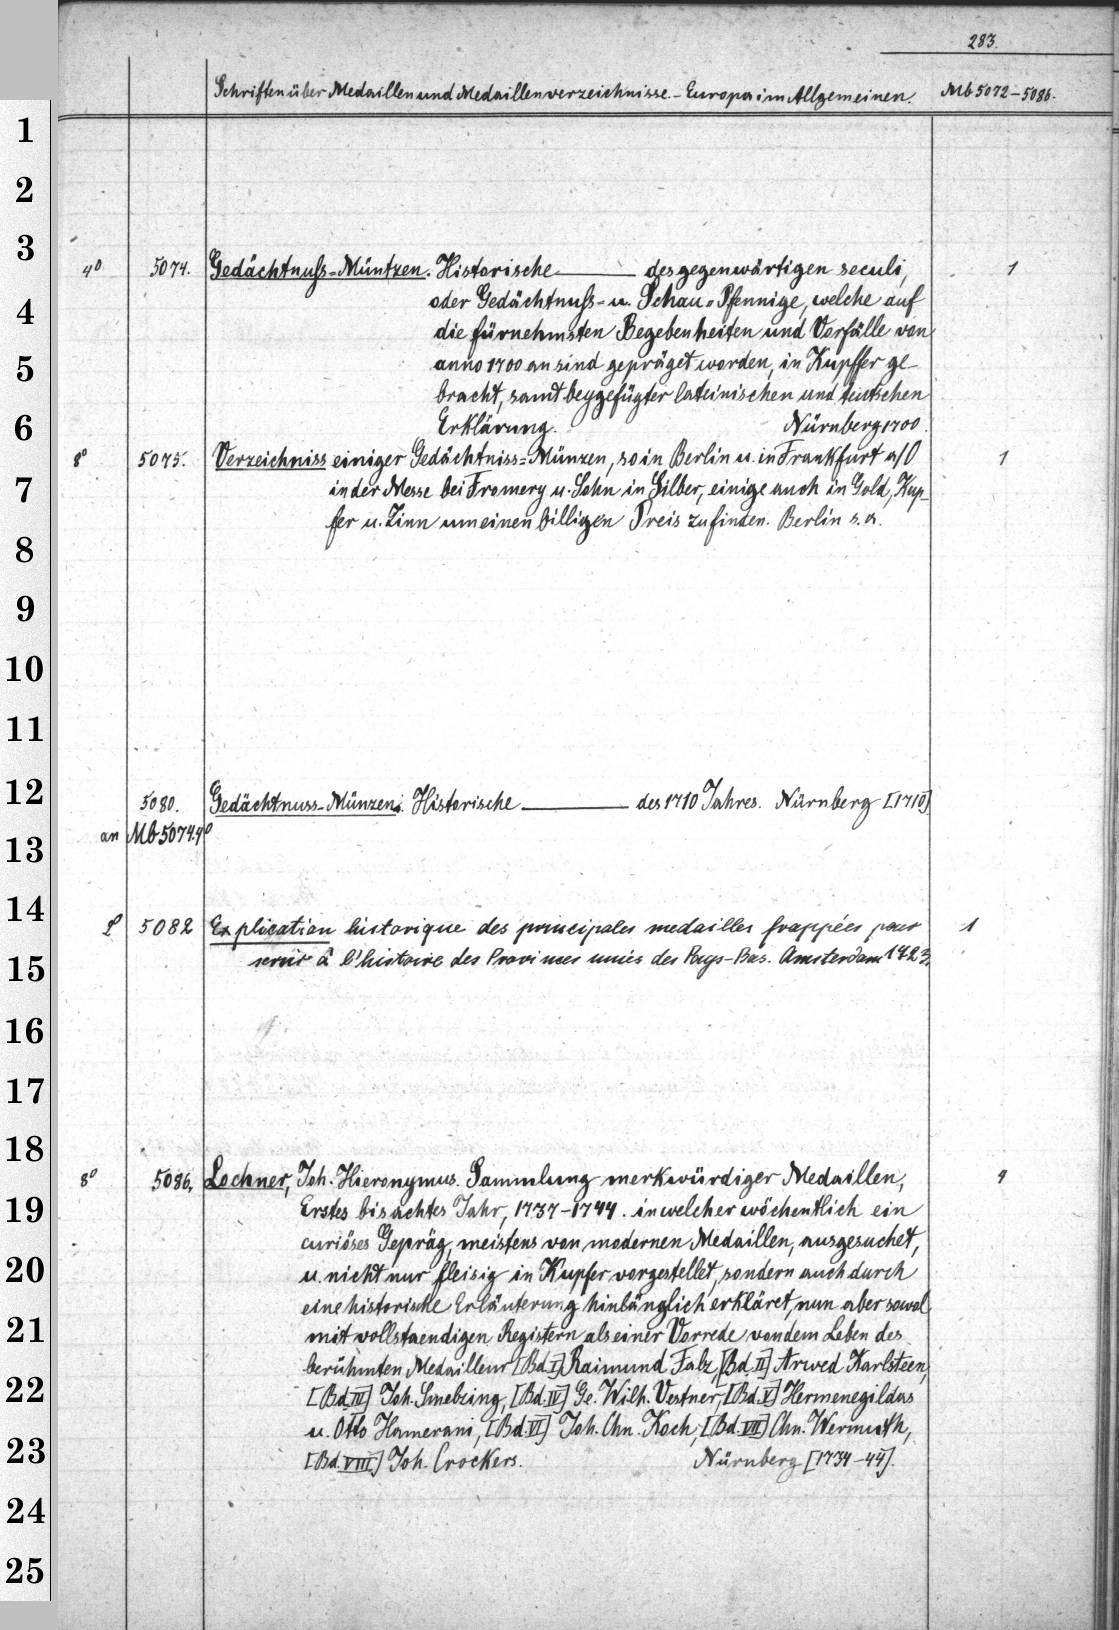 283.
Schriften über Medaillen und Medaillenverzeichnisse. - Europa im Allgemeinen. Mb 5072-5086.
1
2
3
4° 5074. Gedächtnuß-Müntzen. Historische ——— des gegenwärtigen seculi, 1
4 oder Gedächtnuß- u. Schau-Pfennige, welche auf
die fürnehmsten Begebenheiten und Vorfälle von
5 anno 1700 an sind gepräget worden, in Kupffer ge-
bracht, samt beygefügter lateinischen und teutschen
6 Erklärung. Nürnberg 1700.
8° 5075. Verzeichniss einiger Gedächtniss-Münzen, so in Berlin u. in Frankfurt a/O 1
7 in der Messe bei Fromery u. Sohn in Silber, einige auch in Gold, Kup-
fer u. Zinn um einen billigen Preis zu finden. Berlin s. a.
8
9
10
11
12 5080. Gedächtnuss-Münzen. Historische ——— des 1710 Jahres. Nürnberg [1710].
an Mb 5074.4°
13
14 2° 5082 Explication historique des principales medailles frappées pour 1
15 servir à l'histoire des Provinces unies des Pays-Bas. Amsterdam 1723.
16
17
18
8° 5086. Lochner, Joh. Hieronymus. Sammlung merkwürdiger Medaillen, 4
19 Erstes bis achtes Jahr, 1737-1744. in welcher wöchentlich ein
curiöses Gepräg, meistens von modernen Medaillen, ausgesuchet,
20 u. nicht nur fleisig in Kupfer vorgestellet, sondern auch durch
eine historische Erläuterung hinlänglich erkläret, nun aber sowol
21 mit vollstaendigen Registern als einer Vorrede von dem Leben des
berühmten Medailleur [Bd. I] Raimund Falz, [Bd. II] Arwed Karlsteen,
22 [Bd. III] Joh. Smeltzing, [Bd. IV] Ge. Wilh. Vestner, [Bd. V] Hermenegildus
u. Otto Hamerani, [Bd. VI] Joh. Chn. Koch, [Bd. VII] Chn. Wermuth,
23 [Bd. VIII] Joh. Crockers. Nürnberg [1734-44].
24
25